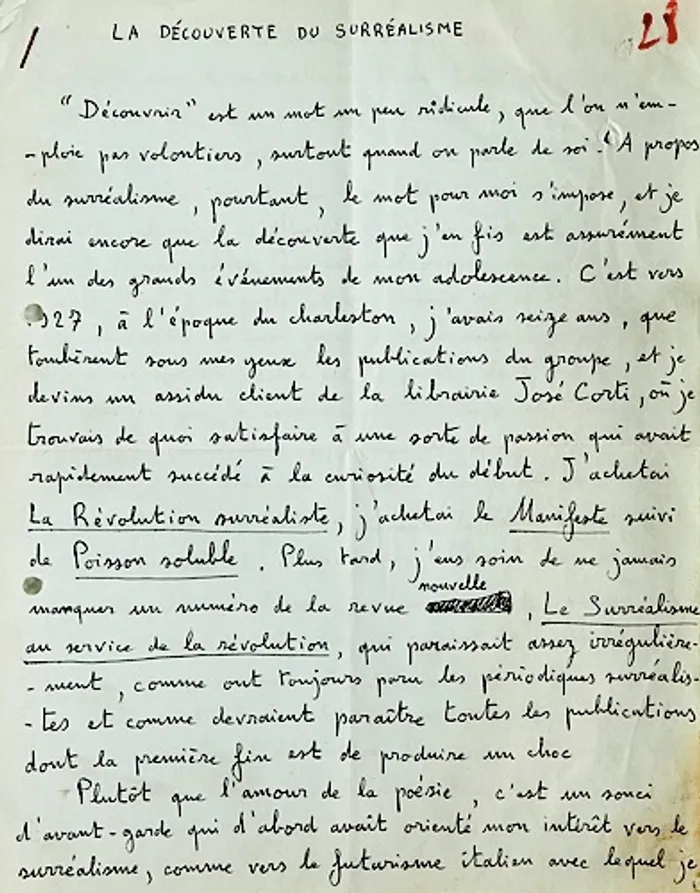 LA DÉCOUVERTE DU SURRÉALISME
28
"Découvrir" est un mot un peu ridicule, que l'on n'em-
-ploie pas volontiers, surtout quand on parle de soi. A propos
du surréalisme, pourtant, le mot pour moi s'impose, et je
dirai encore que la découverte que j'en fis est assurément
l'un des grands événements de mon adolescence. C'est vers
927, à l'époque du charleston, j'avais seize ans, que
tombèrent sous mes yeux les publications du groupe, et je
devins un assidu client de la librairie José Corti, où je
trouvais de quoi satisfaire à une sorte de passion qui avait
rapidement succédé à la curiosité du début. J'achetai
La Révolution surréaliste, j'achetai le Manifeste suivi
de Poisson soluble. Plus tard, j'eus soin de ne jamais
nouvelle
manquer un numéro de la revue , Le Surréalisme
au service de la révolution, qui paraissait assez irrégulière-
-ment, comme ont toujours paru les périodiques surréalis-
-tes et comme devraient paraître toutes les publications
dont la première fin est de produire un choc
Plutôt que l'amour de la poésie, c'est un souci
d'avant-garde qui d'abord avait orienté mon intérêt vers le
surréalisme, comme vers le futurisme italien avec lequel je